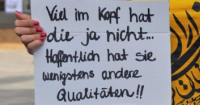 Viel im Kopf hat
die ja nicht...
Hoffentlich hat sie
wenigstens andere
Qualitäten!!